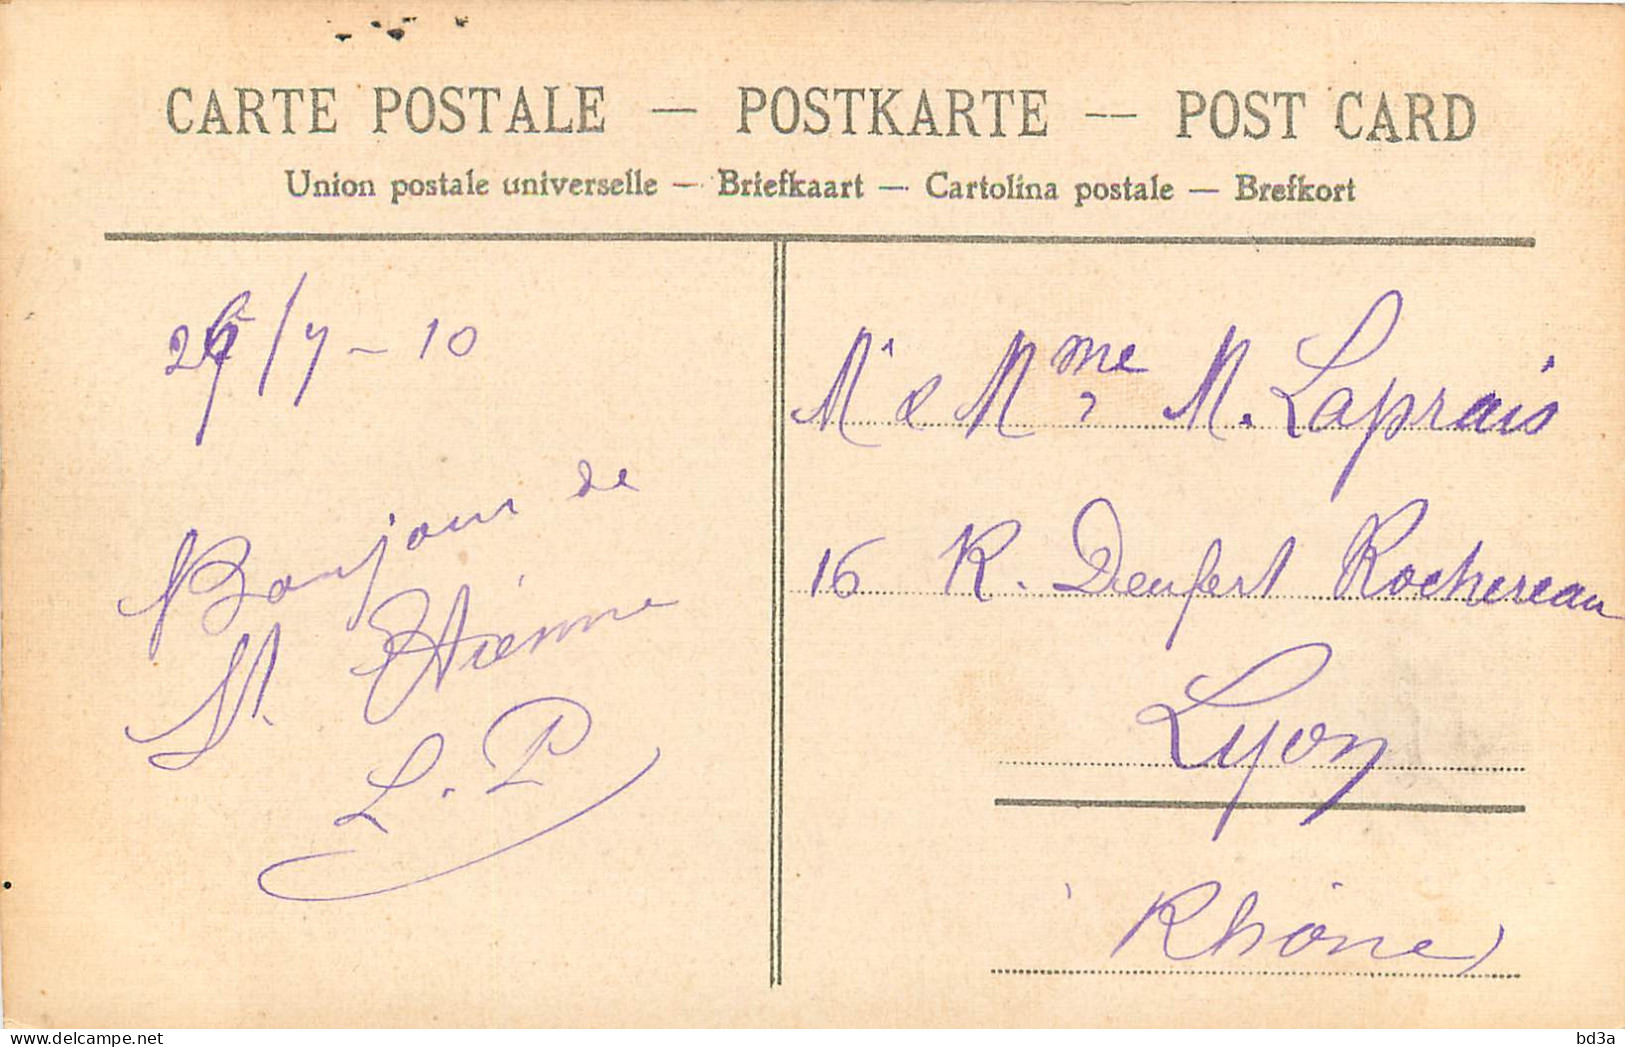 CARTE POSTALE — POSTKARTE — POST CARD
Union postale universelle — Briefkaart — Cartolina postale — Brefkort
/7 - 10
Bonjour de
St. Etienne
L. P
Mr & Mme M. Laprais
16 R. Denfert Rochereau
Lyon
Rhône
delcampe.net
bd3a